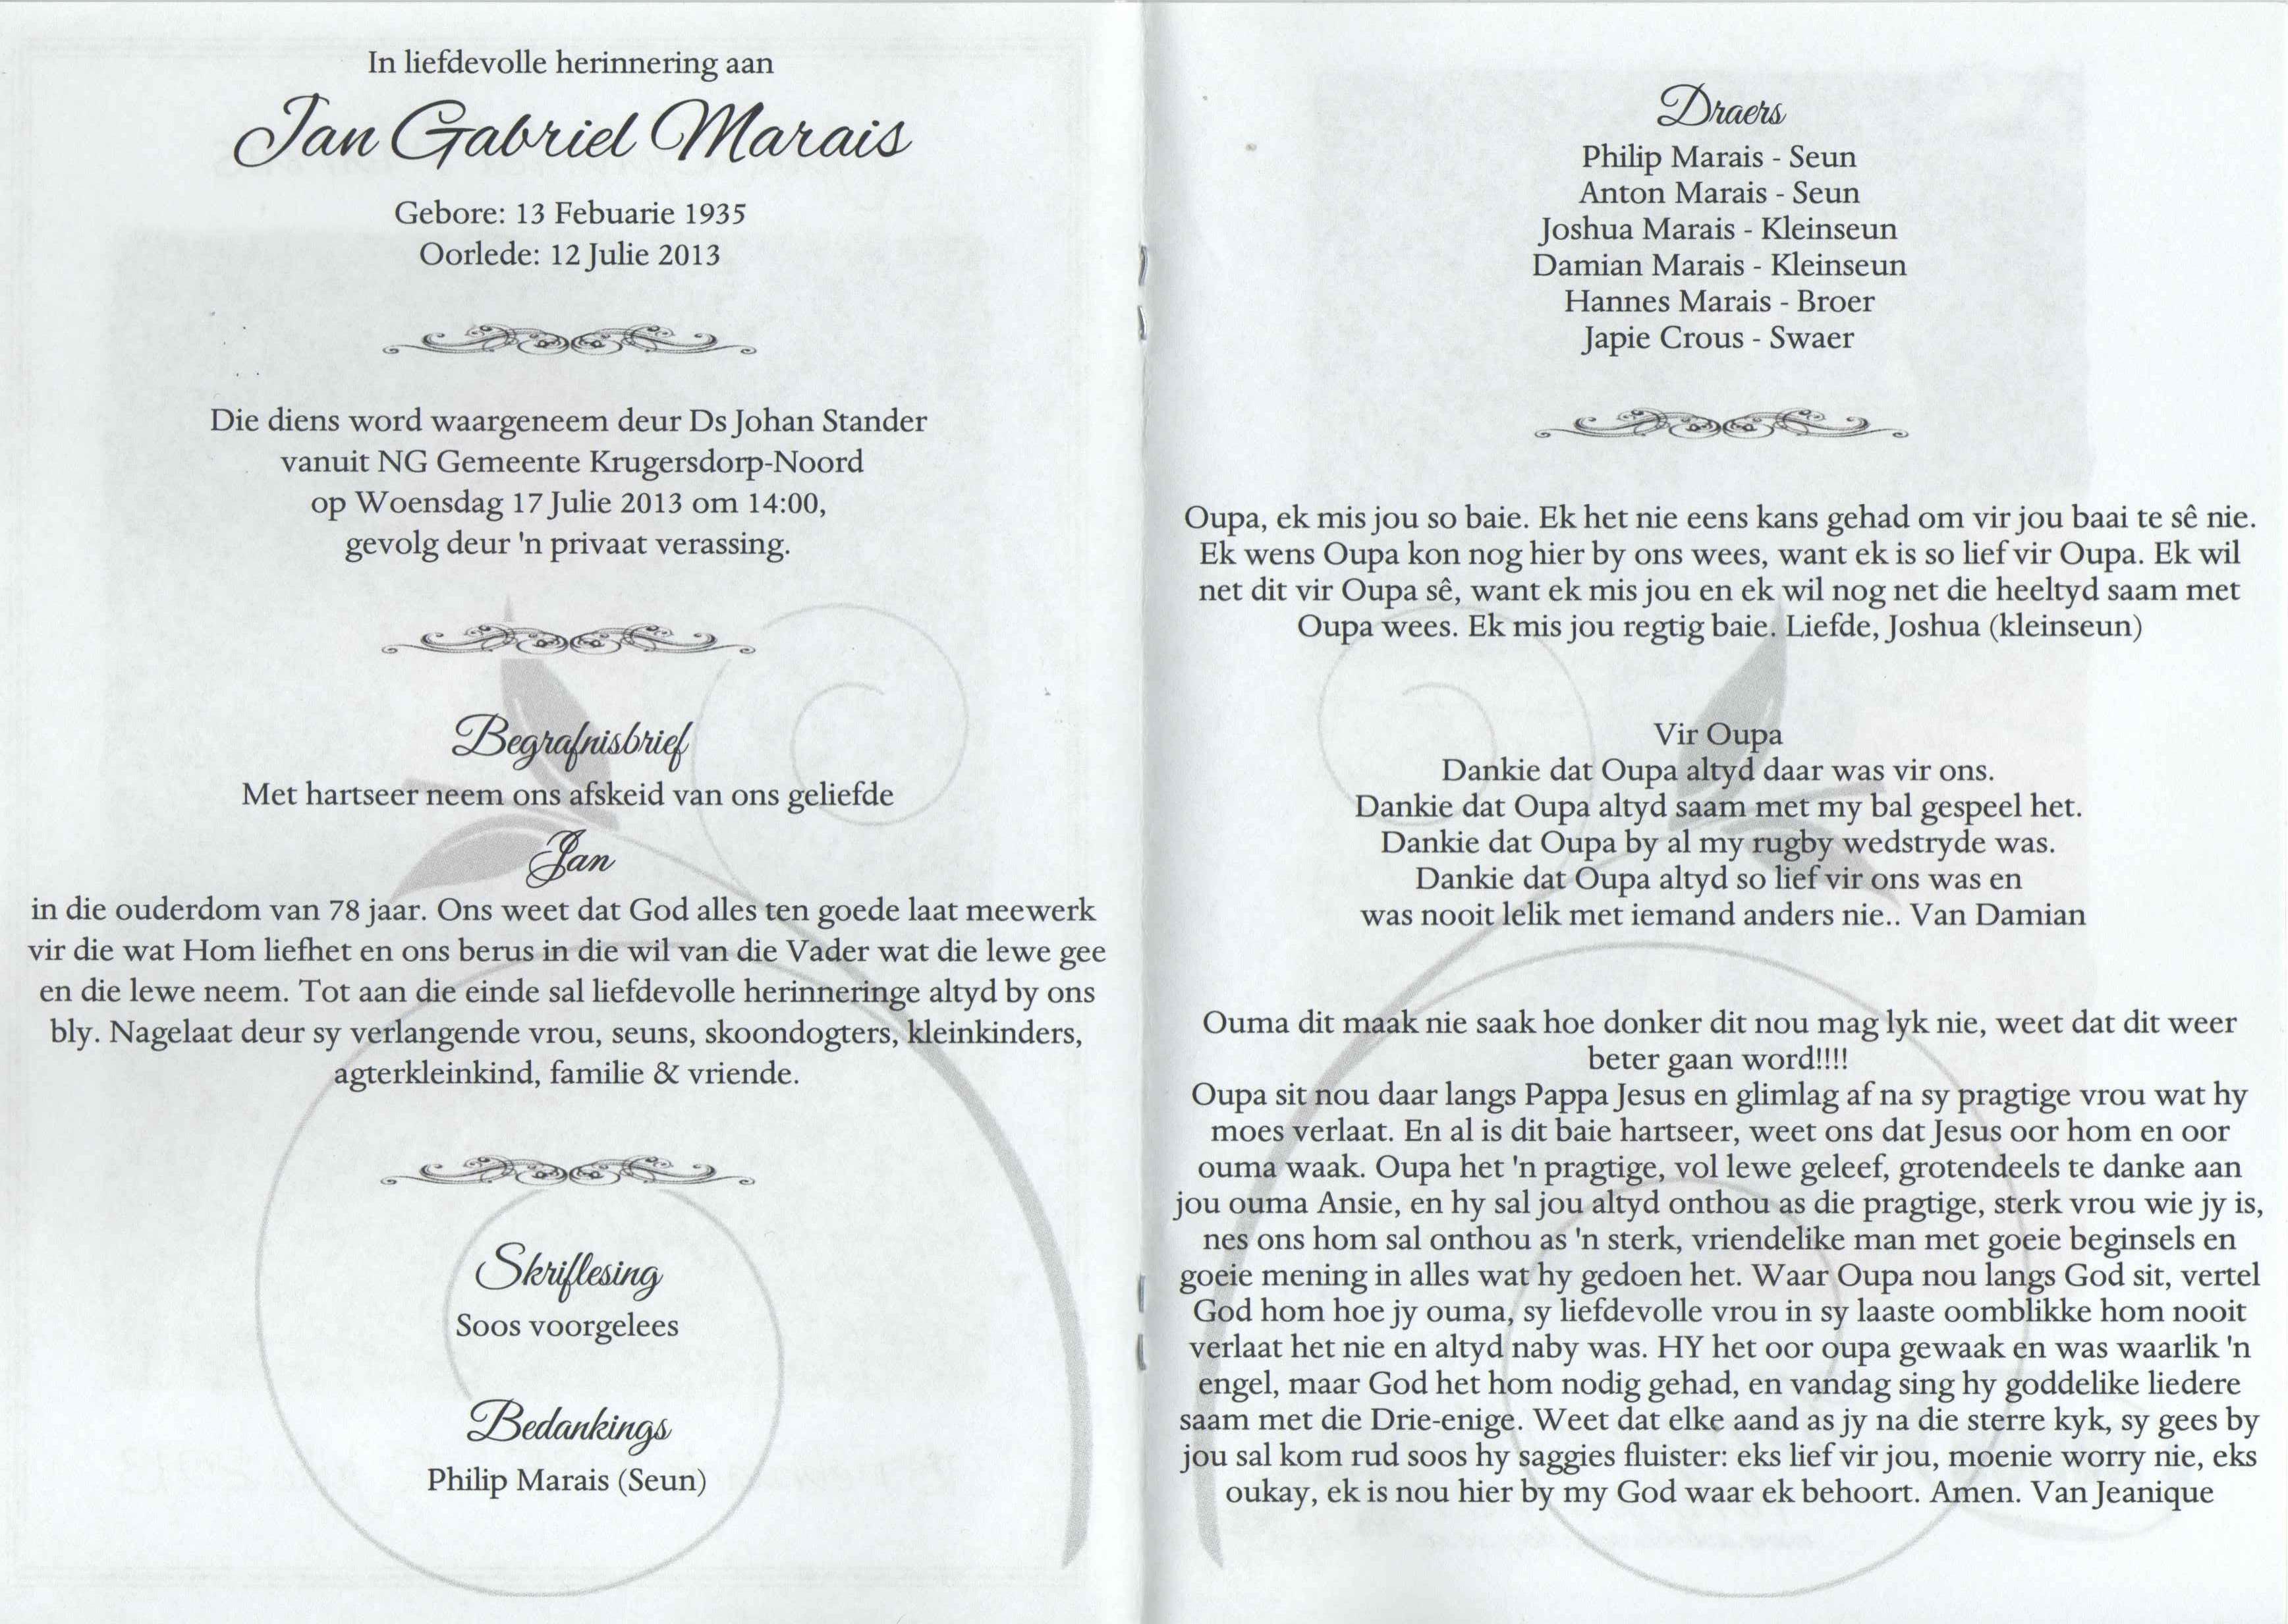 In liefdevolle herinnering aan
Jan Gabriel Marais
Gebore: 13 Febuarie 1935
Oorlede: 12 Julie 2013
Die diens word waargeneem deur Ds Johan Stander
vanuit NG Gemeente Krugersdorp-Noord
op Woensdag 17 Julie 2013 om 14:00,
gevolg deur 'n privaat verassing.
Begrafnisbrief
Met hartseer neem ons afskeid van ons geliefde
Jan
in die ouderdom van 78 jaar. Ons weet dat God alles ten goede laat meewerk
vir die wat Hom liefhet en ons berus in die wil van die Vader wat die lewe gee
en die lewe neem. Tot aan die einde sal liefdevolle herinneringe altyd by ons
bly. Nagelaat deur sy verlangende vrou, seuns, skoondogters, kleinkinders,
agterkleinkind, familie & vriende.
Skriflesing
Soos voorgelees
Bedankings
Philip Marais (Seun)
Draers
Philip Marais - Seun
Anton Marais - Seun
Joshua Marais - Kleinseun
Damian Marais - Kleinseun
Hannes Marais - Broer
Japie Crous - Swaer
Oupa, ek mis jou so baie. Ek het nie eens kans gehad om vir jou baai te sê nie.
Ek wens Oupa kon nog hier by ons wees, want ek is so lief vir Oupa. Ek wil
net dit vir Oupa sê, want ek mis jou en ek wil nog net die heeltyd saam met
Oupa wees. Ek mis jou regtig baie. Liefde, Joshua (kleinseun)
Vir Oupa
Dankie dat Oupa altyd daar was vir ons.
Dankie dat Oupa altyd saam met my bal gespeel het.
Dankie dat Oupa by al my rugby wedstryde was.
Dankie dat Oupa altyd so lief vir ons was en
was nooit lelik met iemand anders nie.. Van Damian
Ouma dit maak nie saak hoe donker dit nou mag lyk nie, weet dat dit weer
beter gaan word!!!!
Oupa sit nou daar langs Pappa Jesus en glimlag af na sy pragtige vrou wat hy
moes verlaat. En al is dit baie hartseer, weet ons dat Jesus oor hom en oor
ouma waak. Oupa het 'n pragtige, vol lewe geleef, grotendeels te danke aan
jou ouma Ansie, en hy sal jou altyd onthou as die pragtige, sterk vrou wie jy is,
nes ons hom sal onthou as 'n sterk, vriendelike man met goeie beginsels en
goeie mening in alles wat hy gedoen het. Waar Oupa nou langs God sit, vertel
God hom hoe jy ouma, sy liefdevolle vrou in sy laaste oomblikke hom nooit
verlaat het nie en altyd naby was. HY het oor oupa gewaak en was waarlik 'n
engel, maar God het hom nodig gehad, en vandag sing hy goddelike liedere
saam met die Drie-enige. Weet dat elke aand as jy na die sterre kyk, sy gees by
jou sal kom rud soos hy saggies fluister: eks lief vir jou, moenie worry nie, eks
oukay, ek is nou hier by my God waar ek behoort. Amen. Van Jeanique